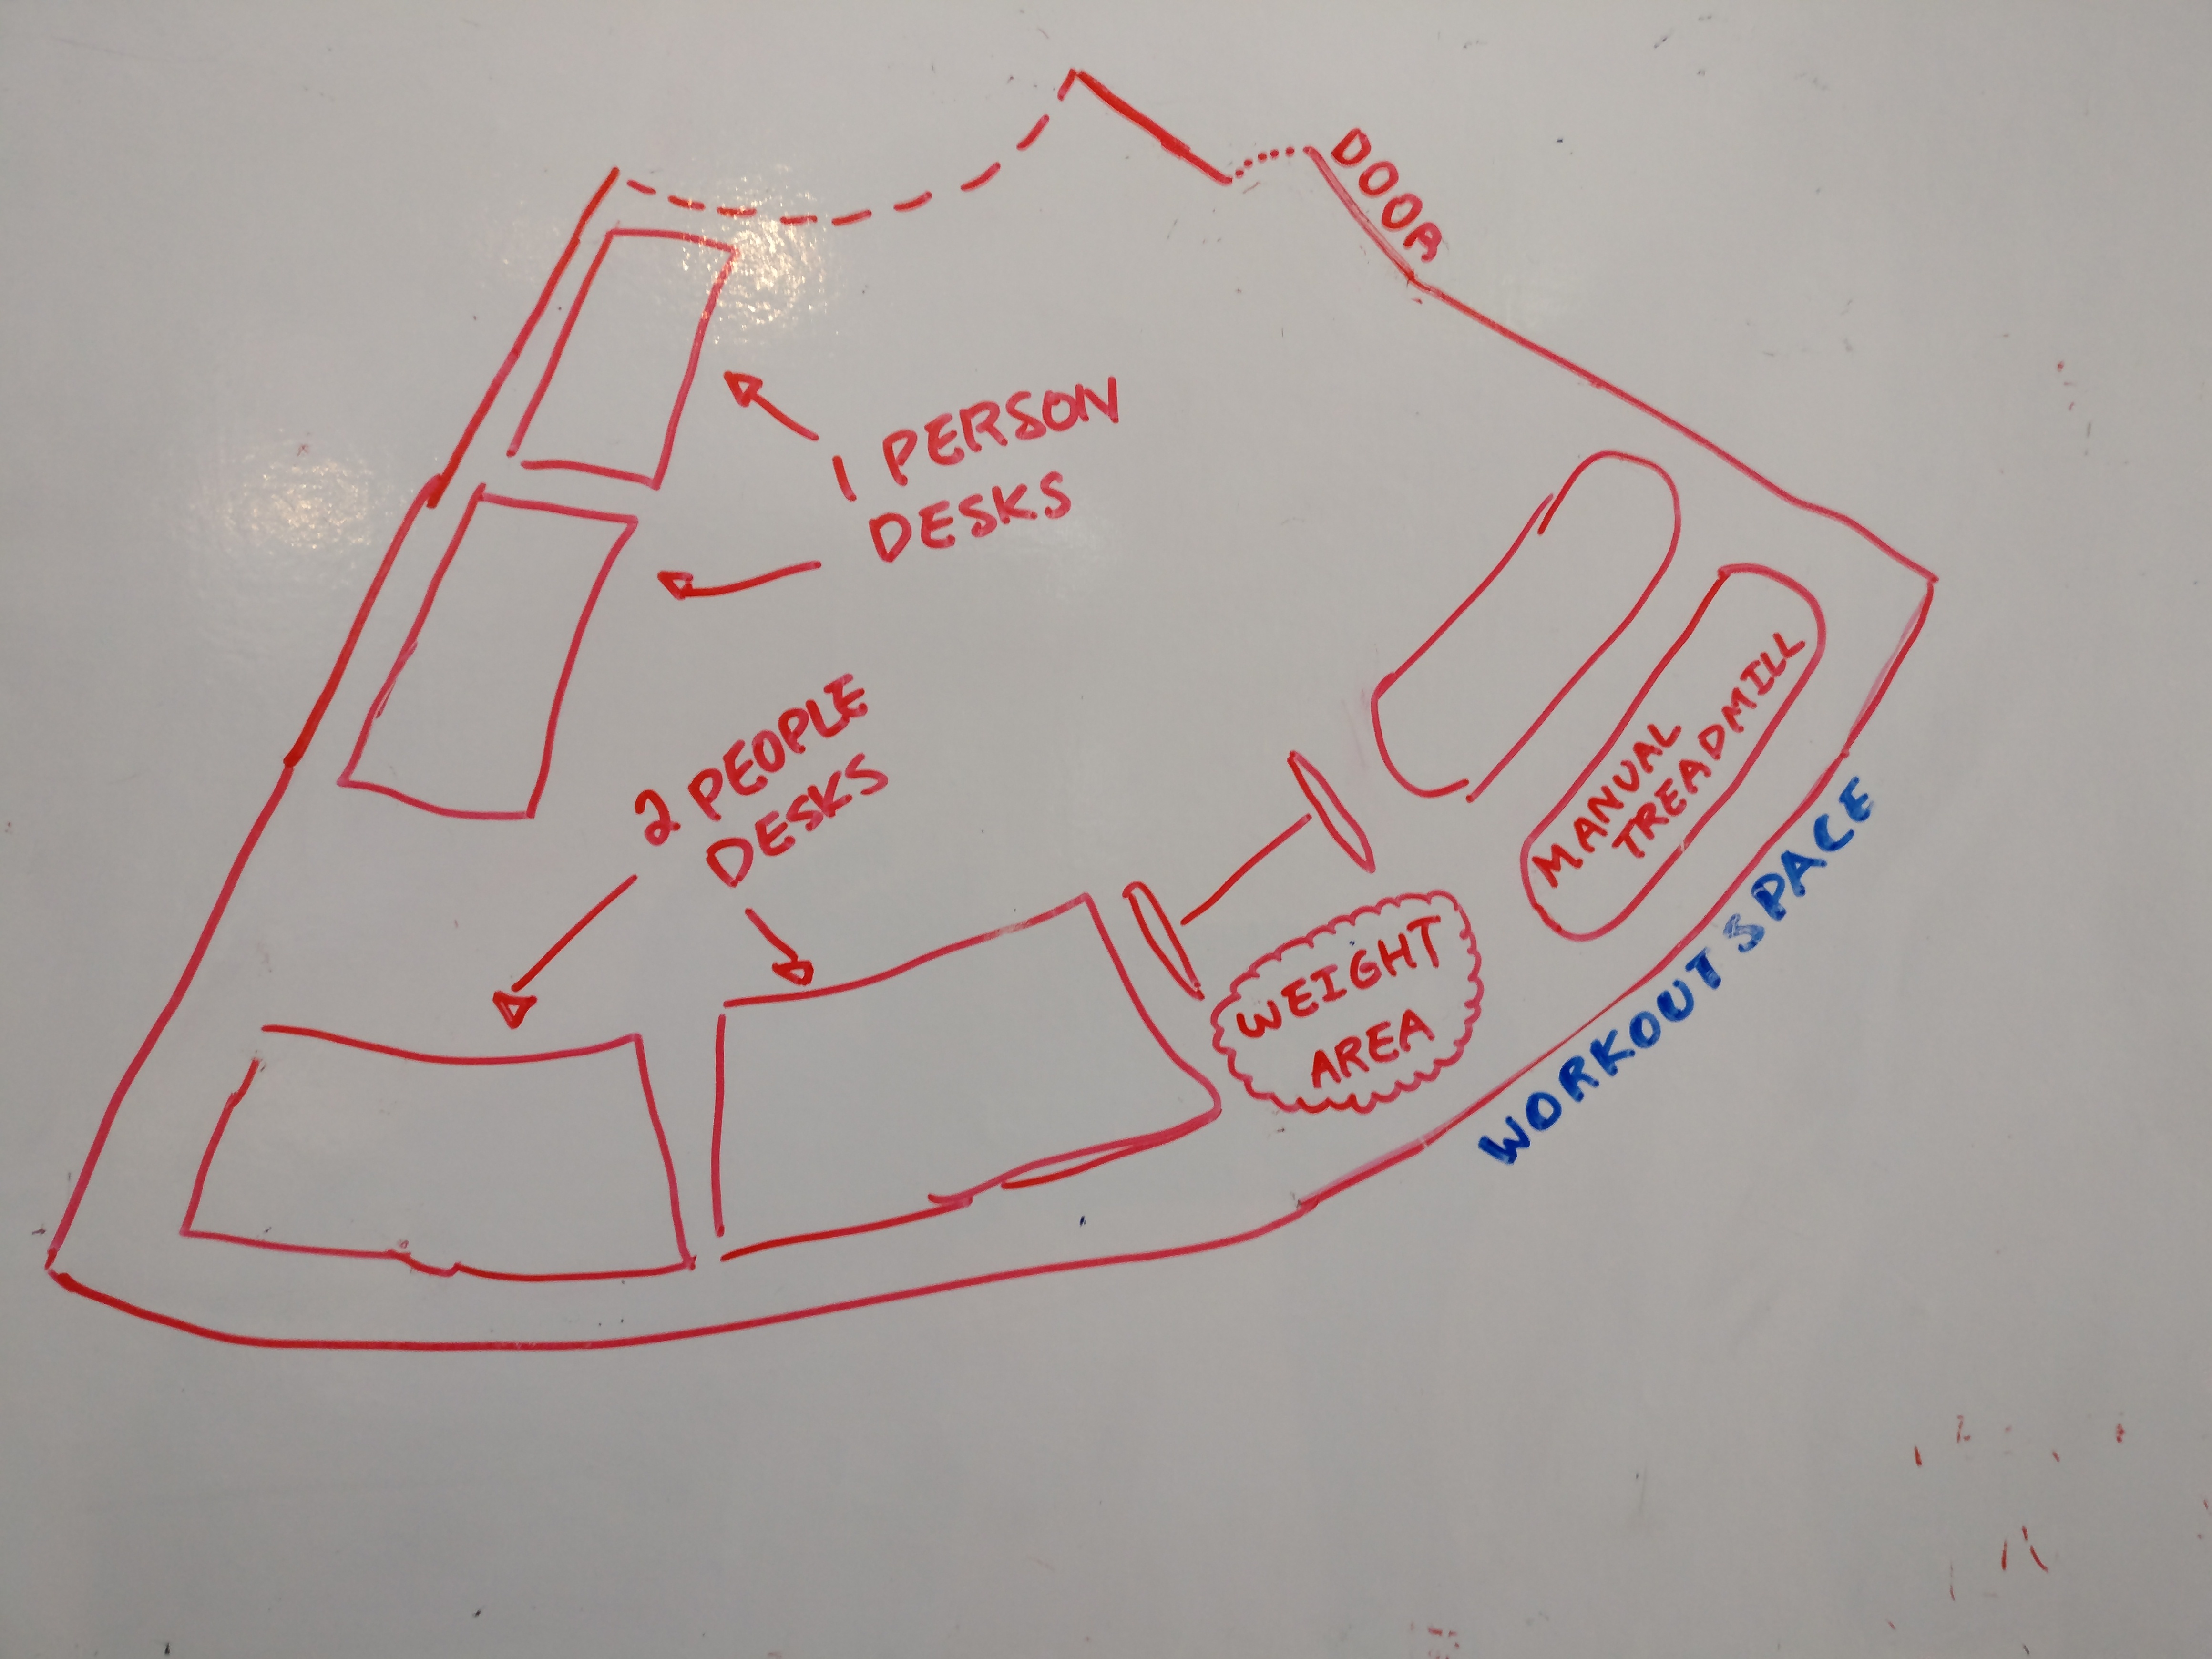 DOOR
1 PERSON
DESKS
2 PEOPLE
DESKS
MANUAL
TREADMILL
WEIGHT
AREA
WORKOUT SPACE